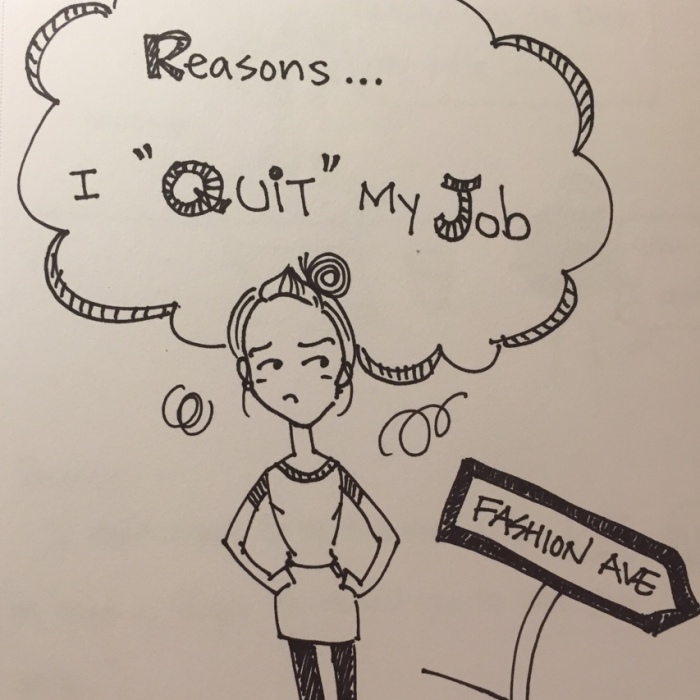 Reasons...
I "Quit" My Job
FASHION AVE